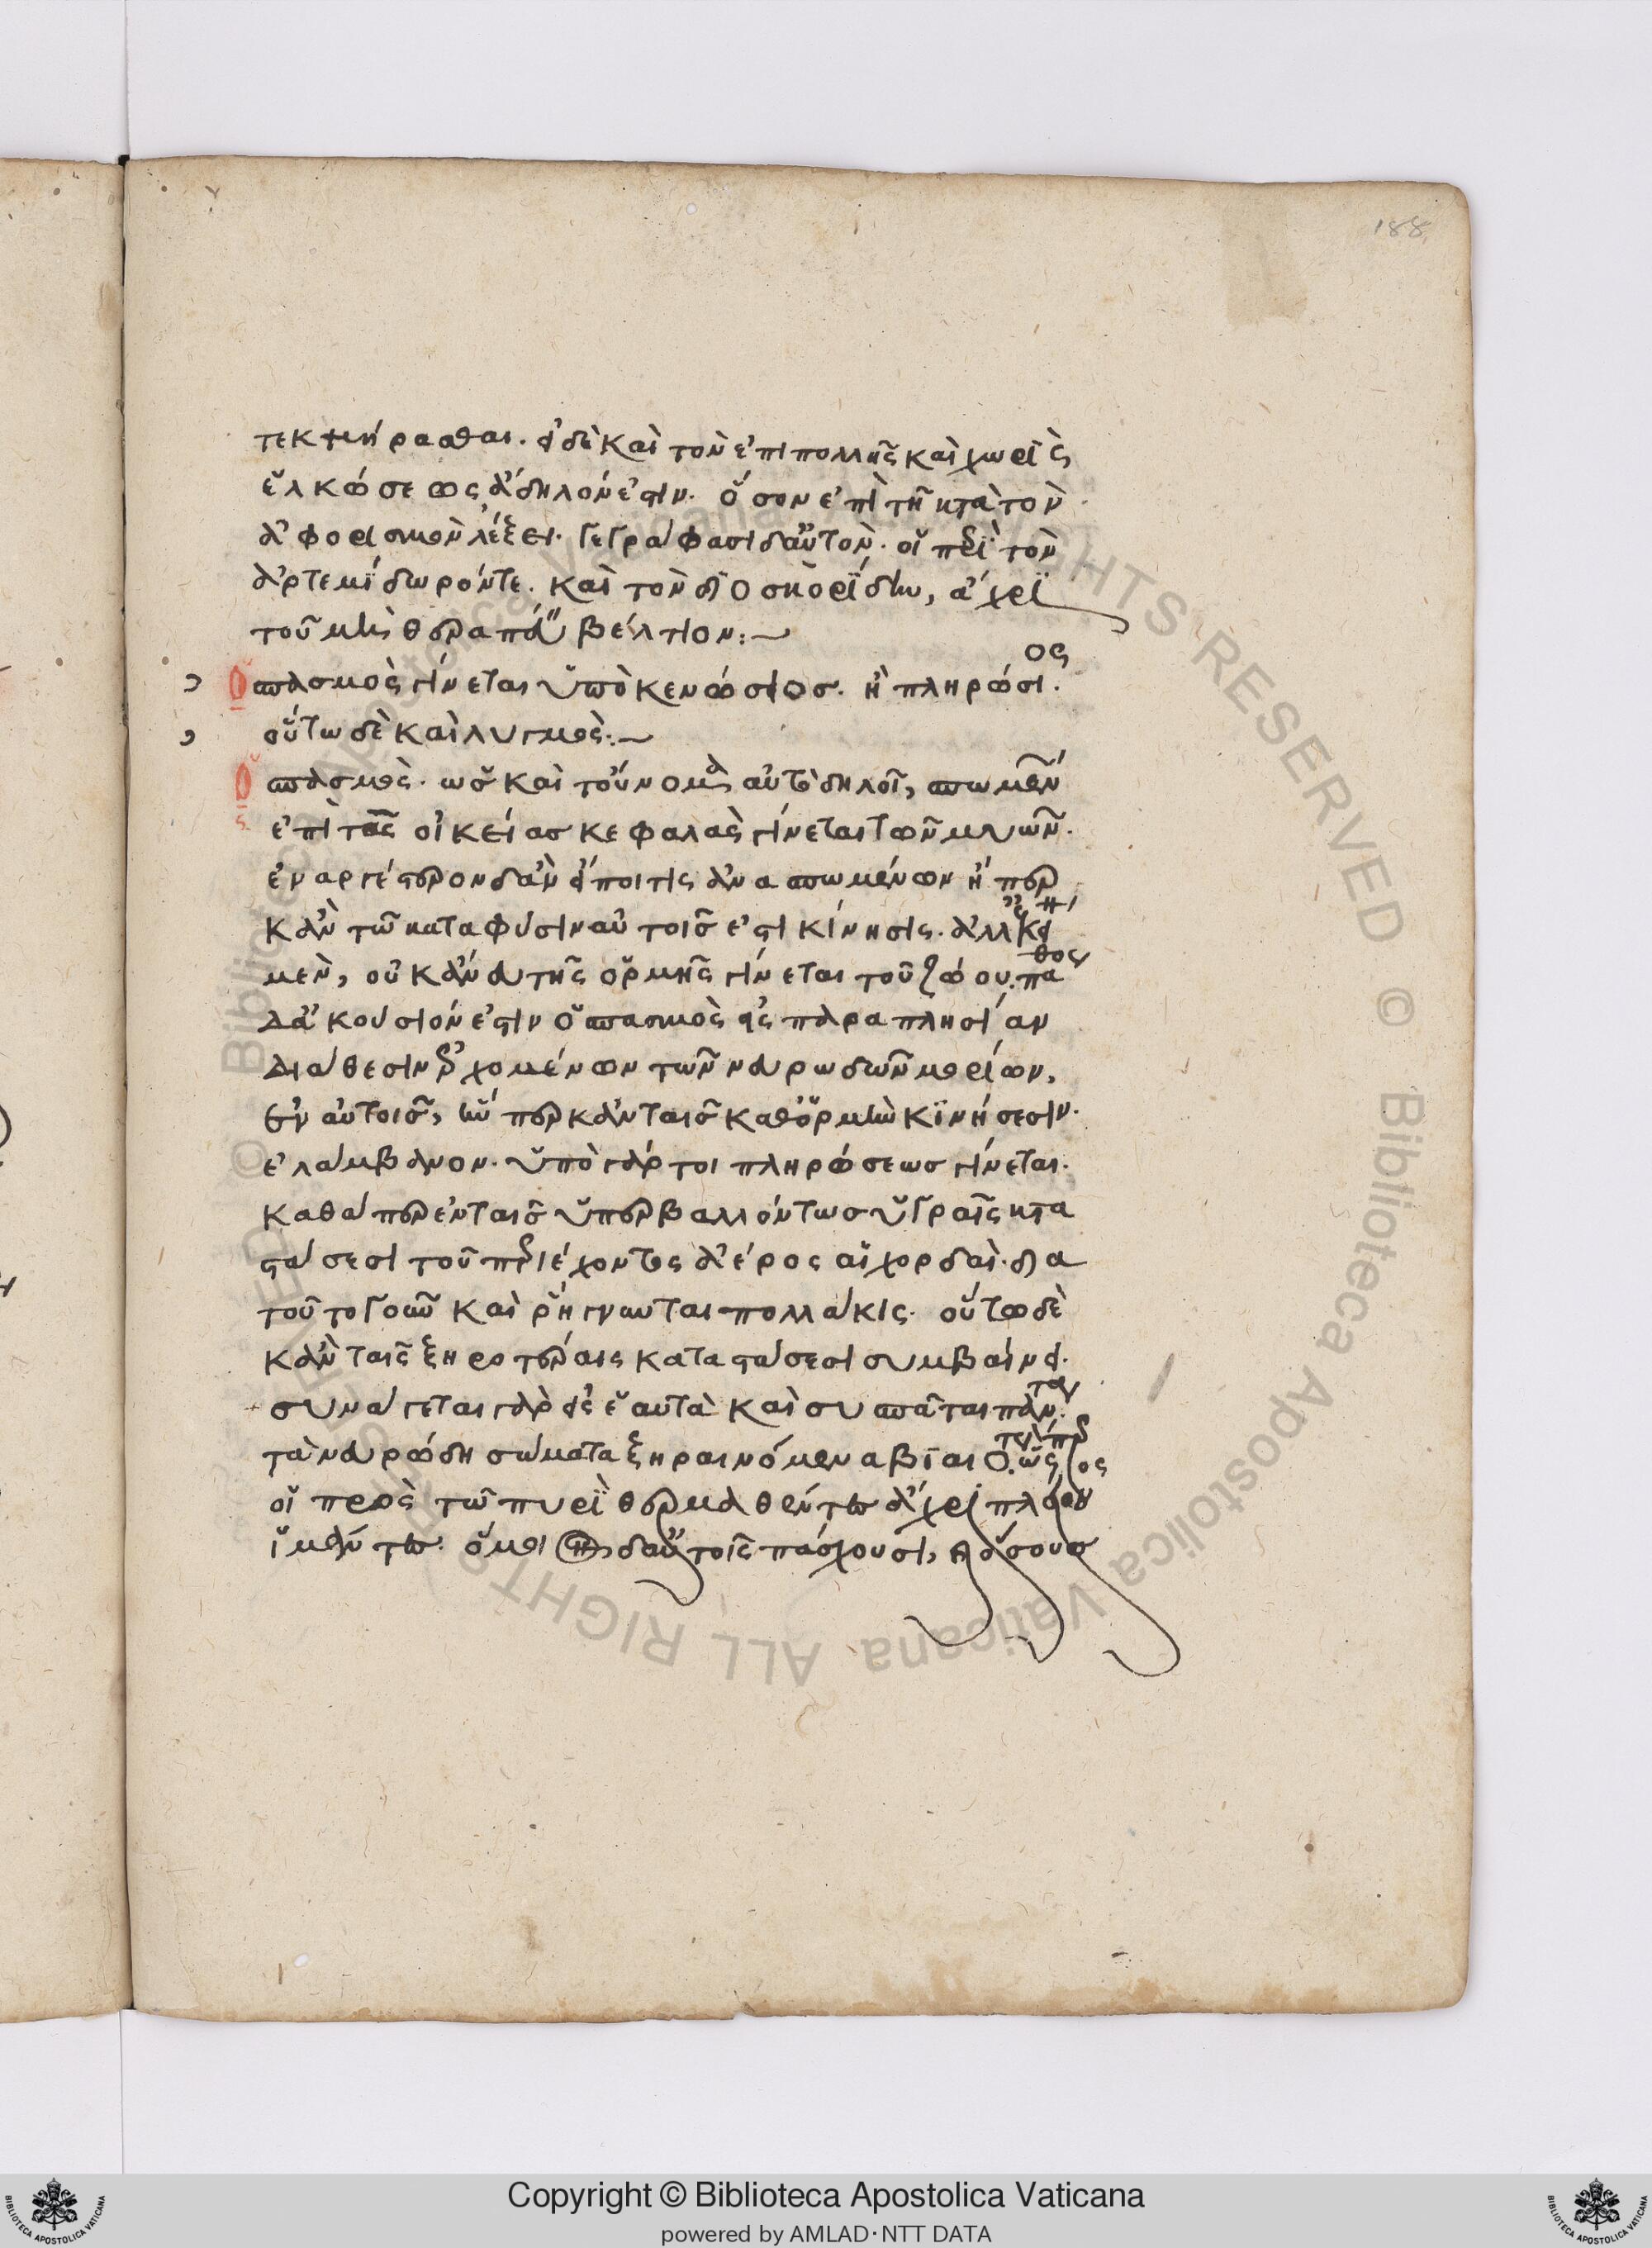 188
τεκμήρασθαι. εἰ δὲ καὶ τὸν ἐπιπολῆς καὶ χωρὶς
ἑλκώσεως ἄδηλόν ἐστιν. ὅσον ἐπὶ τῆ κατὰ τὸν
ἀφορισμὸν λέξει. γεγράφασι δ' αὐτὸν. οἱ περὶ τὸν
ἀρτεμίδωρόν τε. καὶ τὸν διοσκορίδην, ἄχρι
τοῦ μὴ θεραπεύειν βέλτιον:~
Ὁ σπασμὸς γίνεται ὑπὸ κενώσιος. ἢ πληρώσιος.
οὕτω δὲ καὶ λυγμὸς:~
Ὁ σπασμὸς. ὡς καὶ τοὔνομα αὐτὸ δηλοῖ, σπωμένων
ἐπὶ τὰς οἰκείας κεφαλὰς γίνεται τῶν μυῶν.
ἐναργέστερον δ' ἂν εἴποι τις ἀνασπωμένων ἥπερ
κἀν τῶ κατὰ φύσιν αὐτοῖς ἐστι κίνησις. ἀλλ' ἐκείνη
μὲν, οὐκ ἄνευ τῆς ὁρμῆς γίνεται τοῦ ζώου. πάθος
δ' ἀκούσιόν ἐστιν ὁ σπασμὸς εἰς παραπλησίαν
διάθεσιν ἐρχομένων τῶν νευρωδῶν μορίων,
ἐν αὐτοῖς, ἥνπερ κἀν ταῖς καθ' ὁρμὴν κινήσεσιν.
ἐλάμβανον. ὑπὸ γάρ τοι πληρώσεως γίνεται.
καθάπερ ἐν ταῖς ὑπερβαλλόντως ὑγραῖς κατα
στάσεσι τοῦ περιέχοντος ἀέρος αἱ χορδαὶ. διὰ
τοῦτο γοῦν καὶ ῥήγνυνται πολλάκις. οὕτω δὲ
κἀν ταῖς ξηροτέραις καταστάσεσι συμβαίνει.
συνάγεται γὰρ εἰς ἑαυτὰ καὶ συσπᾶται πάντα
τὰ νευρώδη σώματα ξηραινόμενα βιαιότερον. ὥσπερ
οἱ πρὸς τῶ πυρὶ θερμανθέντες ἄχρι πλείονος
ἱμάντες. ὅμοιον δ' αὐτοῖς πάσχουσι, καὶ ὅσους